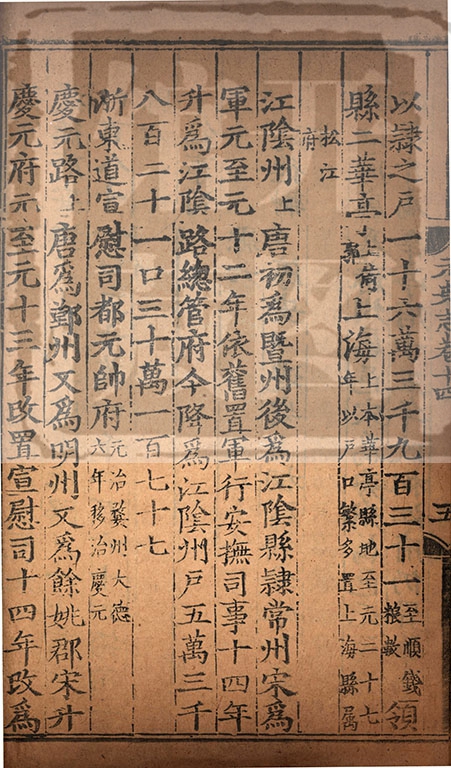 以隷之戶一十六萬三千九百三十一至順錢粮數領
縣二華亭上倚郭上海上本華亭縣地至元二十七年以戶口繁多置上海縣属
松江府
江陰州上唐初爲暨州後爲江陰縣隷常州宋爲
軍元至元十二年依舊置軍行安撫司事十四年
升爲江陰路總管府今降爲江陰州戶五萬三千
八百二十一口三十萬一百七十七
浙東道宣慰司都元帥府元治婺州大德六年移治慶元
慶元路上唐爲鄞州又爲明州又爲餘姚郡宋升
慶元府元至元十三年改置宣慰司十四年改爲
元史志卷十四
五